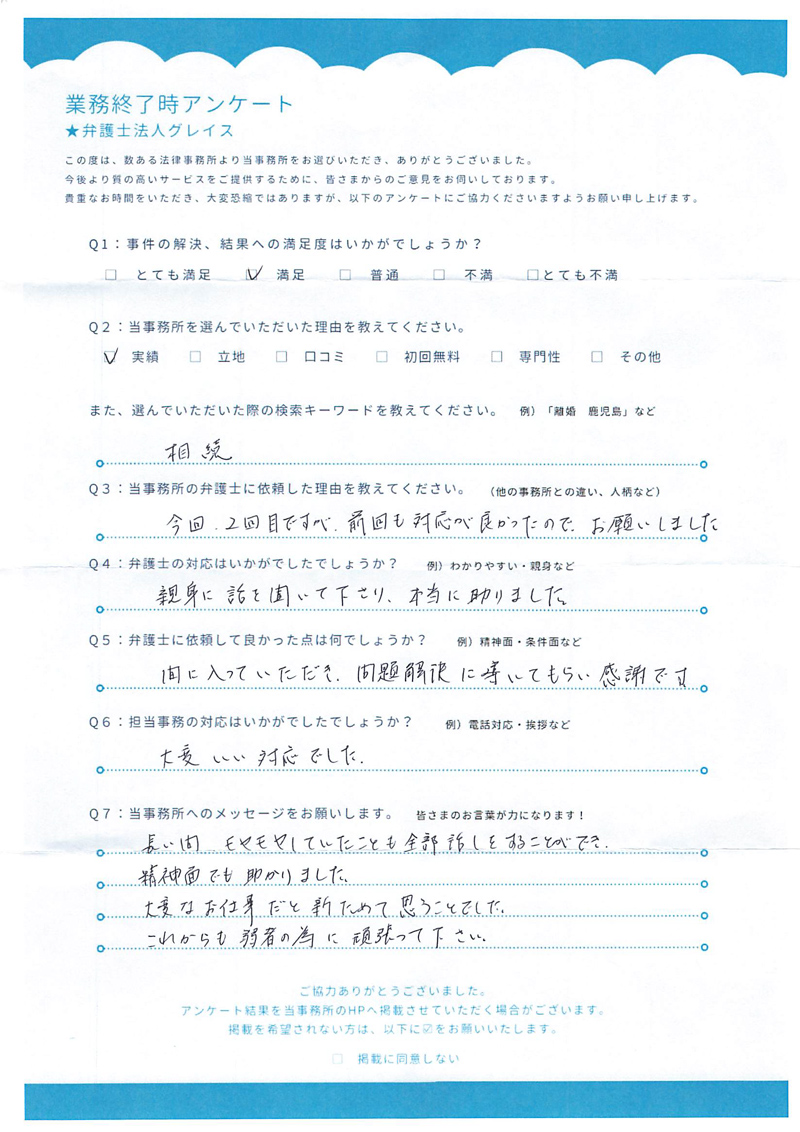 業務終了時アンケート
★弁護士法人グレイス
この度は、数ある法律事務所より当事務所をお選びいただき、ありがとうございました。
今後より質の高いサービスをご提供するために、皆さまからのご意見をお伺いしております。
貴重なお時間をいただき、大変恐縮ではありますが、以下のアンケートにご協力くださいますようお願い申し上げます。
Q1：事件の解決、結果への満足度はいかがでしょうか？
□ とても満足 ☑ 満足 □ 普通 □ 不満 □とても不満
Q2：当事務所を選んでいただいた理由を教えてください。
☑ 実績 □ 立地 □ 口コミ □ 初回無料 □ 専門性 □ その他
また、選んでいただいた際の検索キーワードを教えてください。 例）「離婚 鹿児島」など
相続
Q3：当事務所の弁護士に依頼した理由を教えてください。 （他の事務所との違い、人柄など）
今回、2回目ですが、前回も対応が良かったので、お願いしました
Q4：弁護士の対応はいかがでしたでしょうか？ 例）わかりやすい・親身など
親身に話を聞いて下さり、本当に助りました。
Q5：弁護士に依頼して良かった点は何でしょうか？ 例）精神面・条件面など
間に入っていただき、問題解決に導いてもらい感謝です
Q6：担当事務の対応はいかがでしたでしょうか？ 例）電話対応・挨拶など
大変いい対応でした。
Q7：当事務所へのメッセージをお願いします。 皆さまのお言葉が力になります！
長い間、モヤモヤしていたことも全部話しをすることができ、
精神面でも助かりました。
大変なお仕事だと新ためて思うことでした。
これからも弱者の為に頑張って下さい。
ご協力ありがとうございました。
アンケート結果を当事務所のHPへ掲載させていただく場合がございます。
掲載を希望されない方は、以下に☑をお願いいたします。
□ 掲載に同意しない